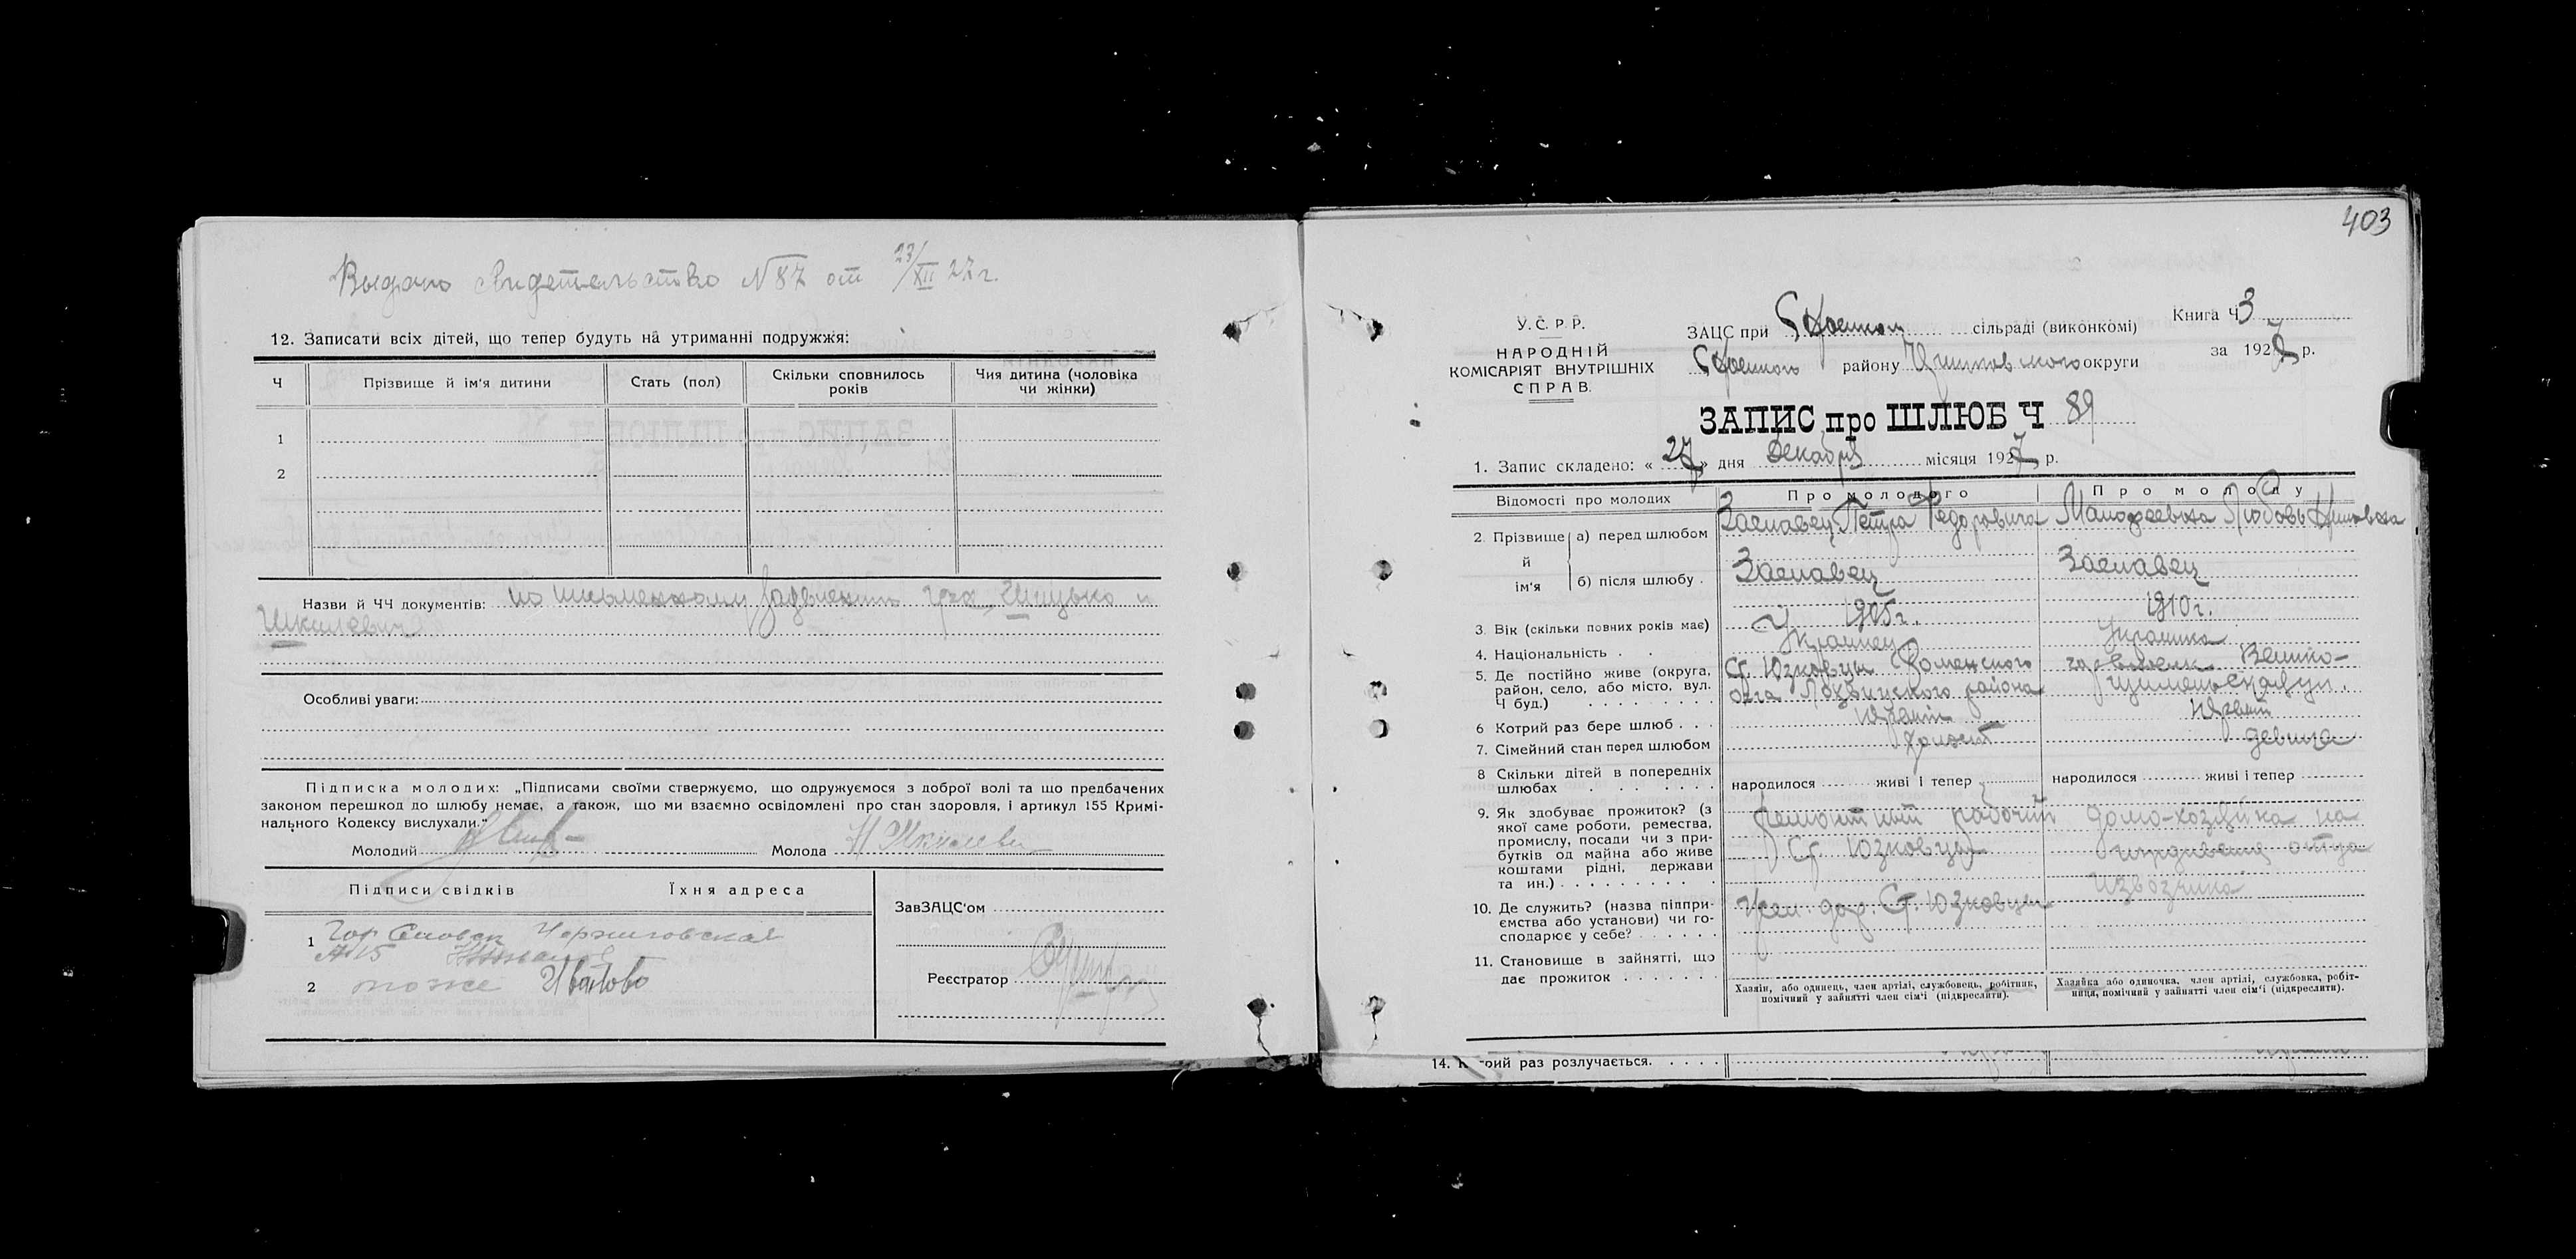 Выдано Свидетельство N 87 от 23/XII 27 г.
12. Записати всіх дітей, що тепер будуть на утриманні подружжя:
Ч Прізвище й ім'я дитини Стать (пол) Скільки сповнилось років Чия дитина (чоловіка чи жінки)
1
2
Назви й ЧЧ документів: по письменному заявлению гр-н и
Шкилевич
Особливі уваги:
Підписка молодих: „Підписами своїми ствержуємо, що одружуємося з доброї волі та що предбачених
законом перешкод до шлюбу немає, а також, що ми взаємно освідомлені про стан здоровля, і артикул 155 Кримі-
нального Кодексу вислухали."
Молодий Молода Н Шкилевич
Підписи свідків Їхня адреса
ЗавЗАЦС'ом
1 гор Сновск Черниговская
№ 15
2 тоже
Реєстратор
403
У. С. Р. Р.
НАРОДНІЙ
КОМІСАРІЯТ ВНУТРІШНІХ
СПРАВ.
ЗАЦС при сільраді (виконкомі)
Книга Ч 3
району округи
за 1927 р.
ЗАПИС про ШЛЮБ Ч 89
1. Запис складено: « 27 » дня Декабря місяця 1927 р.
Відомості про молодих Про молодого Про молоду
2. Прізвище й ім'я а) перед шлюбом Заславец Петра Федоровича Любовь
б) після шлюбу Заславец Заславец
3. Вік (скільки повних років має) 1905 г. 1910 г.
4. Національність Украинец Украинка
5. Де постійно живе (округа,
район, село, або місто, вул.
Ч буд.) Ст. Юзковцы Роменского
окга Лохвицкого района
6 Котрий раз бере шлюб первый первый
7. Сімейний стан перед шлюбом холост девица
8 Скільки дітей в попередніх
шлюбах народилося живі і тепер народилося живі і тепер
9. Як здобуває прожиток? (з
якої саме роботи, ремества,
промислу, посади чи з при-
бутків од майна або живе
коштами рідні, держави
та ин.) ремонтный рабочий
Ст. Юзковцы
домо-хозяйка на
иждивении отца
извозчика
10. Де служить? (назва підпри-
ємства або установи) чи го-
сподарює у себе? Ст. Юзковцы
11. Становище в зайнятті, що
дає прожиток
Хазяїн, або одинець, член артілі, службовець, робітник,
помічний у зайнятті член сім'ї (підкреслити).
Хазяйка або одиночка, член артілі, службовка, робіт-
ниця, помічний у зайнятті член сім'ї (підкреслити).
14. раз розлучається.